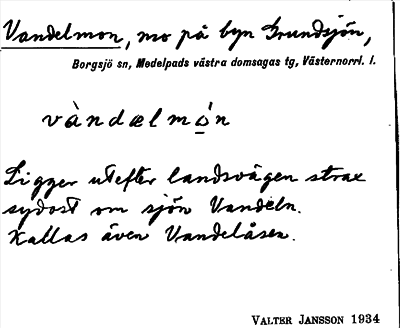 Vandelmon, mo på byn Grundsjön,
Borgsjö sn, Medelpads västra domsagas tg, Västernorrl. l.
vàndælmò̠n
Ligger utefter landsvägen strax
sydost om sjön Vandeln.
Kallas även Vandelåsen.
VALTER JANSSON 1934